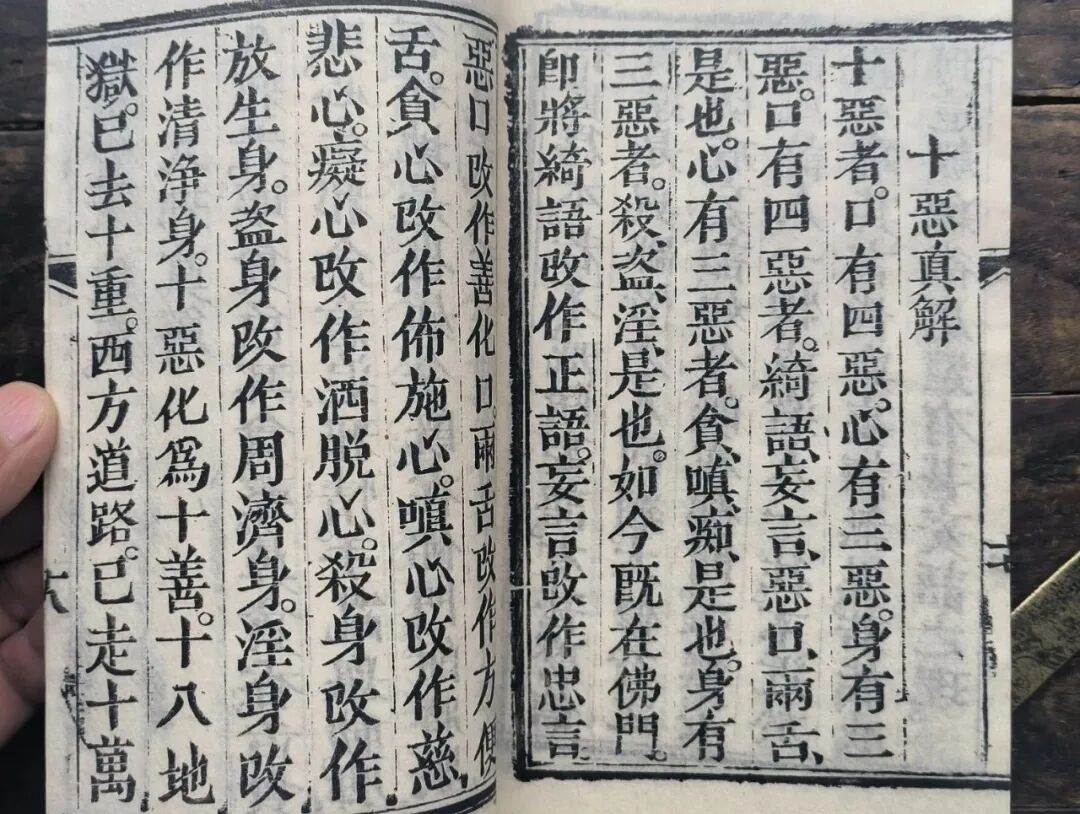 十惡真解
十惡者。口有四惡。心有三惡。身有三
惡。口有四惡者。綺語、妄言、惡口、兩舌、
是也。心有三惡者。貪、嗔、痴、是也。身有
三惡者。殺、盗、淫、是也。如今既在佛門。
即將綺語改作正語。妄言改作忠言、
惡口改作善化口。兩舌改作方便
舌。貪心改作佈施心。嗔心改作慈
悲心。癡心改作洒脱心。殺身改作
放生身。盗身改作周濟身。淫身改
作清浄身。十惡化爲十善。十八地
獄。已去十重。西方道路。已走十萬